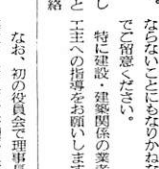 ならないことにもなりかねな
でご留意ください。
特に建設・建築関係の業者
工主への指導をお願いします
なお、初の役員会で理事長